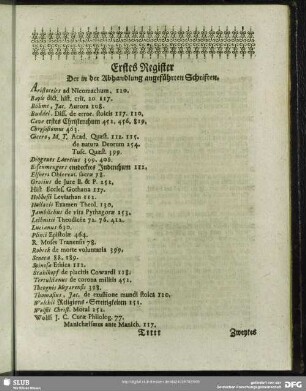 Erstes Register
Der in der Abhandlung angeführten Schriften.
Aristoteles ad Nicomachum, 120.
Bayle dict. hist. crit. 20 117.
Böhme, Jac. Aurora 108.
Buddei, Diss. de error. stoicis 117. 120,
Cave erstes Christenthum 451. 456, 819,
Chrysostomus 463.
Cicero, M. T. Acad. Quæst. 112. 115.
de natura Deorum 254.
Tusc. Quæst. 399.
Diogenes Laertius 399. 408.
Eisenmengers entdecktes Judenthum 111.
Elsneri Observat. sacræ 78.
Grotius de jure B. & P. 251.
Hist. Eccles. Gothana 117.
Hobbesii Leviathan 111.
Hollazii Examen Theol. 130.
Jamblichus de vita Pythagoræ 253.
Leibnitii Theodicée 72. 76. 412.
Lucianus 630.
Plinii Epistolæ 464.
R. Moses Tranensis 78.
Robeck de morte voluntaria 399.
Seneca 88. 189.
Spinosa Ethica 111.
placitis Cowardi 118.
Tertullianus de corona militis 451.
Theognis Megarensis 398.
Thomasius, Jac. de exustione mundi stoica 120.
Walchii Religions-Streitigkeiten 131.
Wolfii Christ. Moral 152.
Wolfii J. C. Curæ Philolog. 77.
Manichæismus ante Manich. 117.
Tttt
Zweytes
SLUB
Wir führen Wissen.